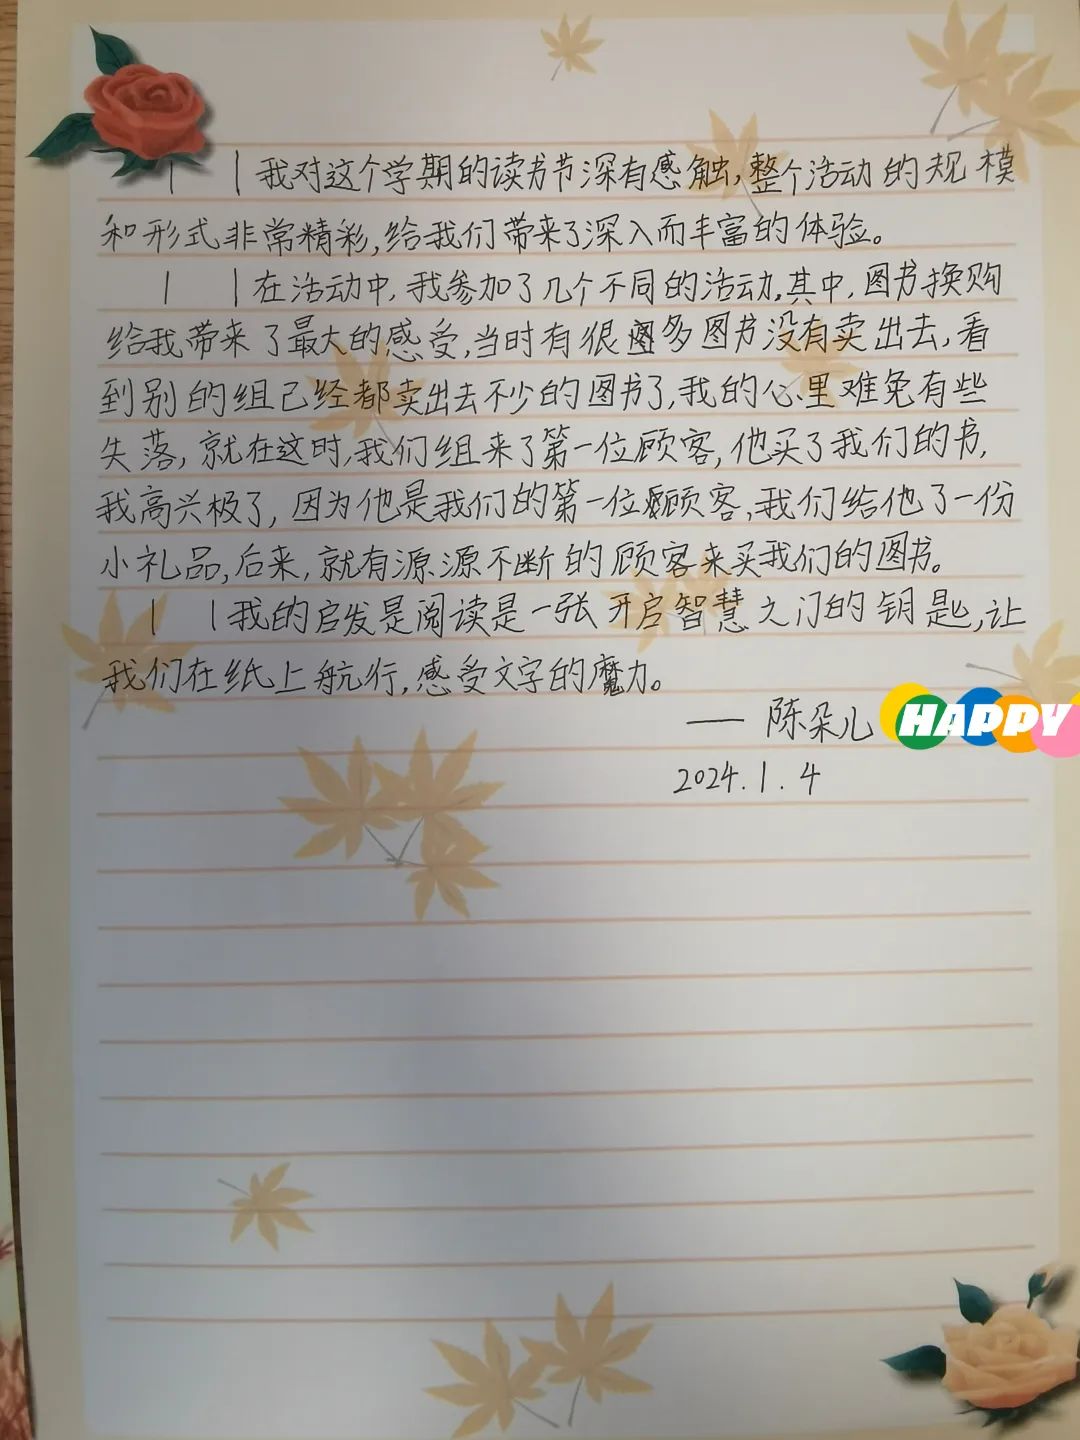 我对这个学期的读书节深有感触,整个活动的规模
和形式非常精彩,给我们带来了深入而丰富的体验。
在活动中,我参加了几个不同的活动,其中,图书换购
给我带来了最大的感受,当时有很多图书没有卖出去,看
到别的组已经都卖出去不少的图书了,我的心里难免有些
失落,就在这时,我们组来了第一位顾客,他买了我们的书,
我高兴极了,因为他是我们的第一位顾客,我们给他了一份
小礼品,后来,就有源源不断的顾客来买我们的图书。
我的启发是阅读是一张开启智慧之门的钥匙,让
我们在纸上航行,感受文字的魔力。
—— 陈朵儿
HAPPY
2024.1.4